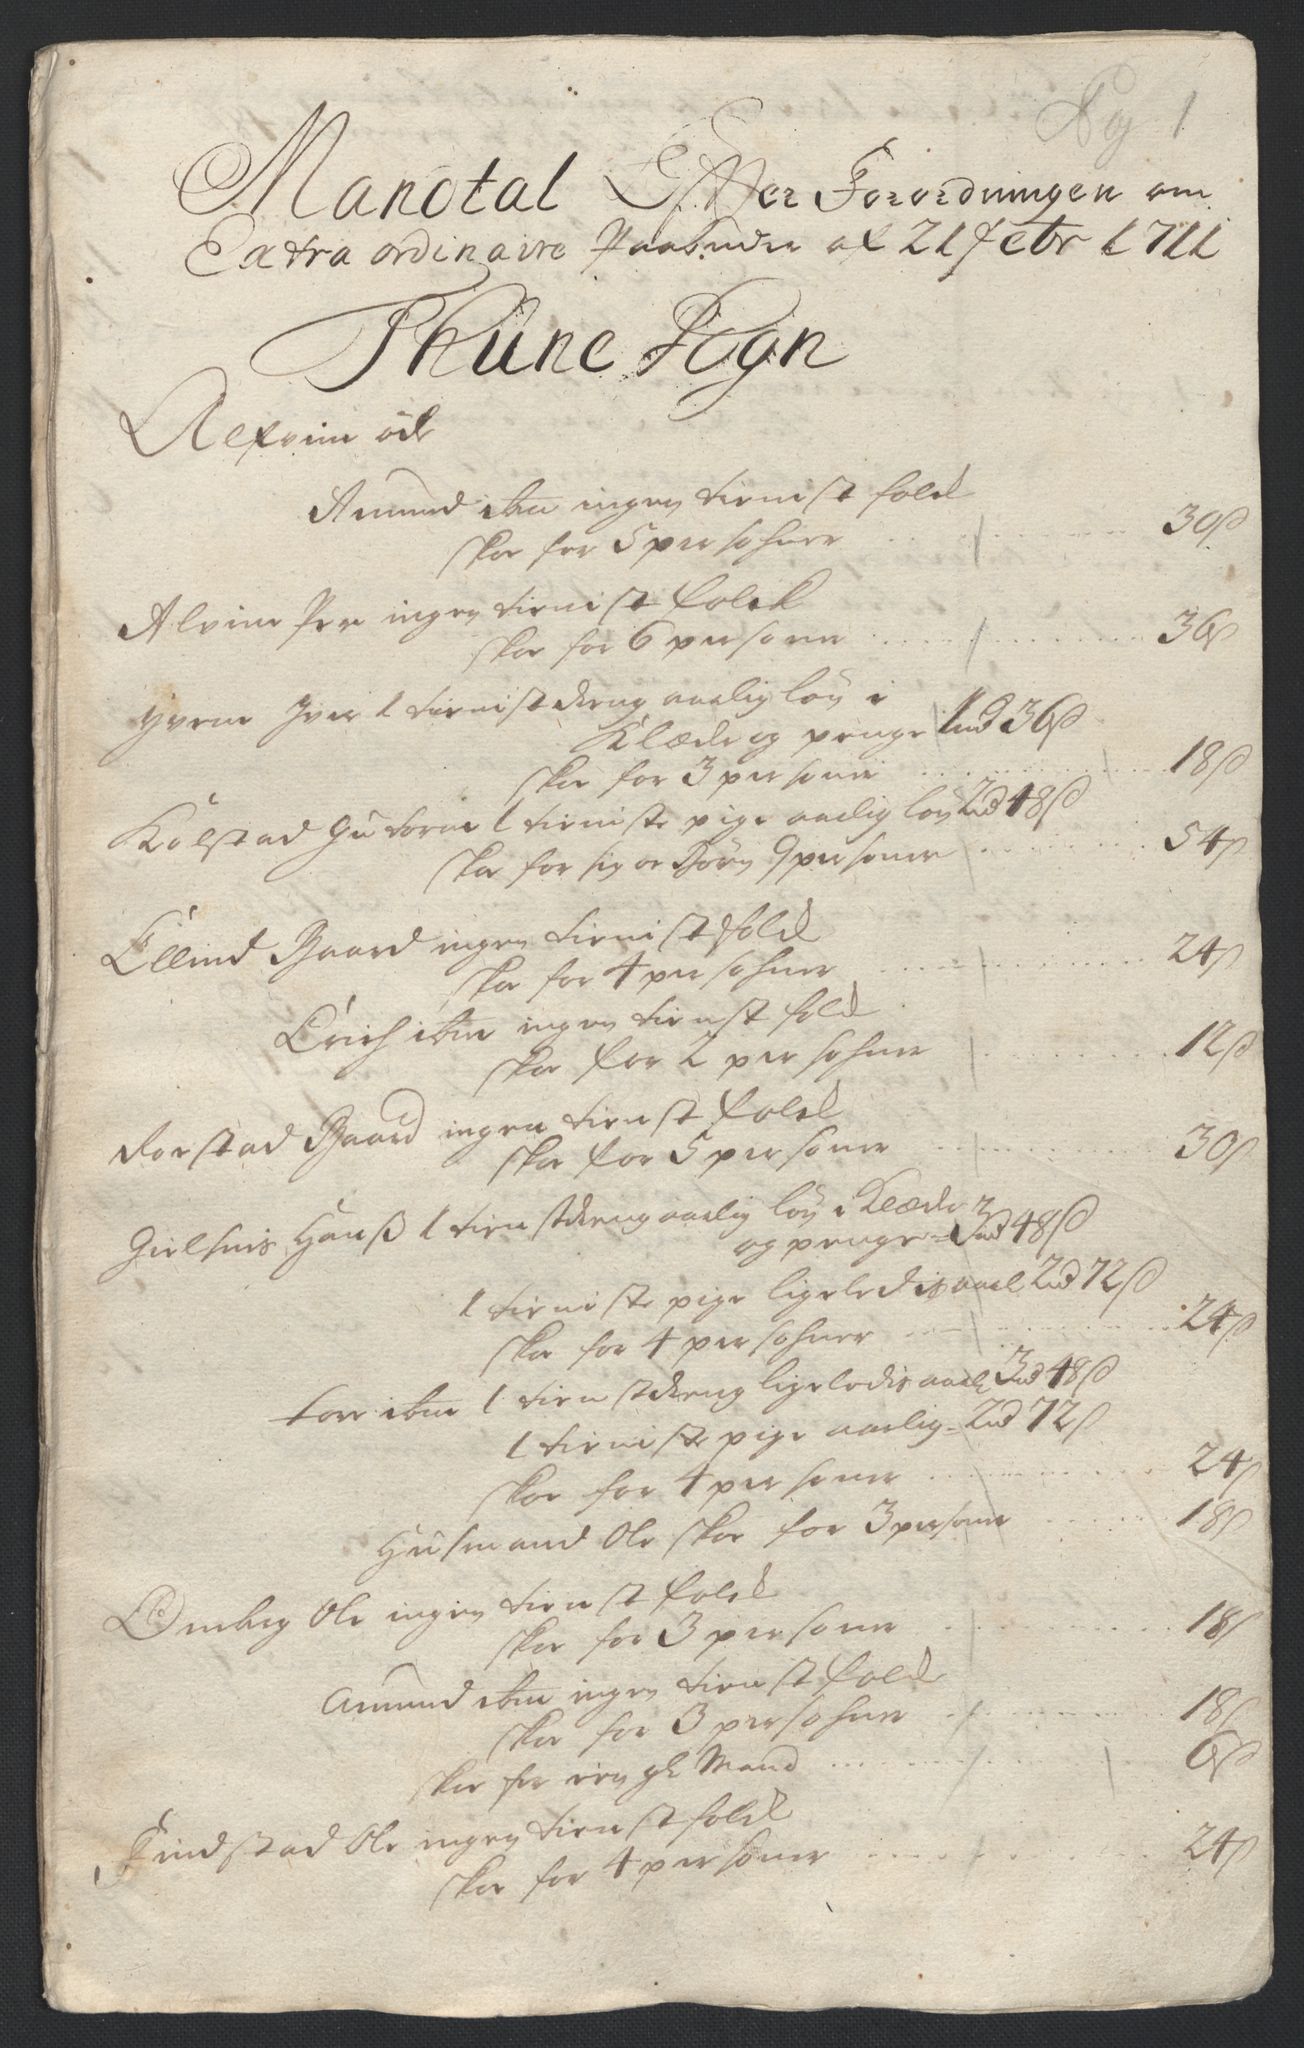 No 1
Mandtal Efter Forordningen om
Extra ordinaire Paabuder af 21 Febr 1711
Thune Sogn
Alfvim ødr
Amund ibm ingen tienist folck
skoe for 5 persohner 30 ß
Alvim Per ingen tienist folck
skoe for 6 personer 36 ß
Yvene Iver 1 tienist dreng aarlig løn i
Klæde og penge 1 rd 36 ß
skoe for 3 personer 18 ß
Kølstad Guttorm 1 tieniste pige aarlig løn 2 rd 48 ß
skoe for sig oc Børn 9 personer 54 ß
Ellind Baard ingen tienist folck
skoe for 4 persohner 24 ß
Erich ibm ingen tienst folck
skoe for 2 persohner 12 ß
Torstad Baard ingen tienst folck
skoe for 5 personer 30 ß
Gielsnis Hanß 1 tienst dreng aarlig løn i Klæde
og penge 3 rd 48 ß
1 tieniste pige ligeledis aarl 2 rd 72 ß
skoe for 4 persohner 24 ß
Tore ibm 1 tienst dreng ligeledis aarl 3 rd 48 ß
1 tieniste pige aarlig 2 rd 72 ß
skoe for 4 personer 24 ß
Husmand Ole skoe for 3 personer 18 ß
Omberg Ole ingen tienst folck
skoe for 3 personer 18 ß
Amund ibm ingen tienst folck
skoe for 3 persohner 18 ß
skoe for een gl Mand 6 ß
Findstad Ole ingen tienst folck
skoe for 4 personer 24 ß